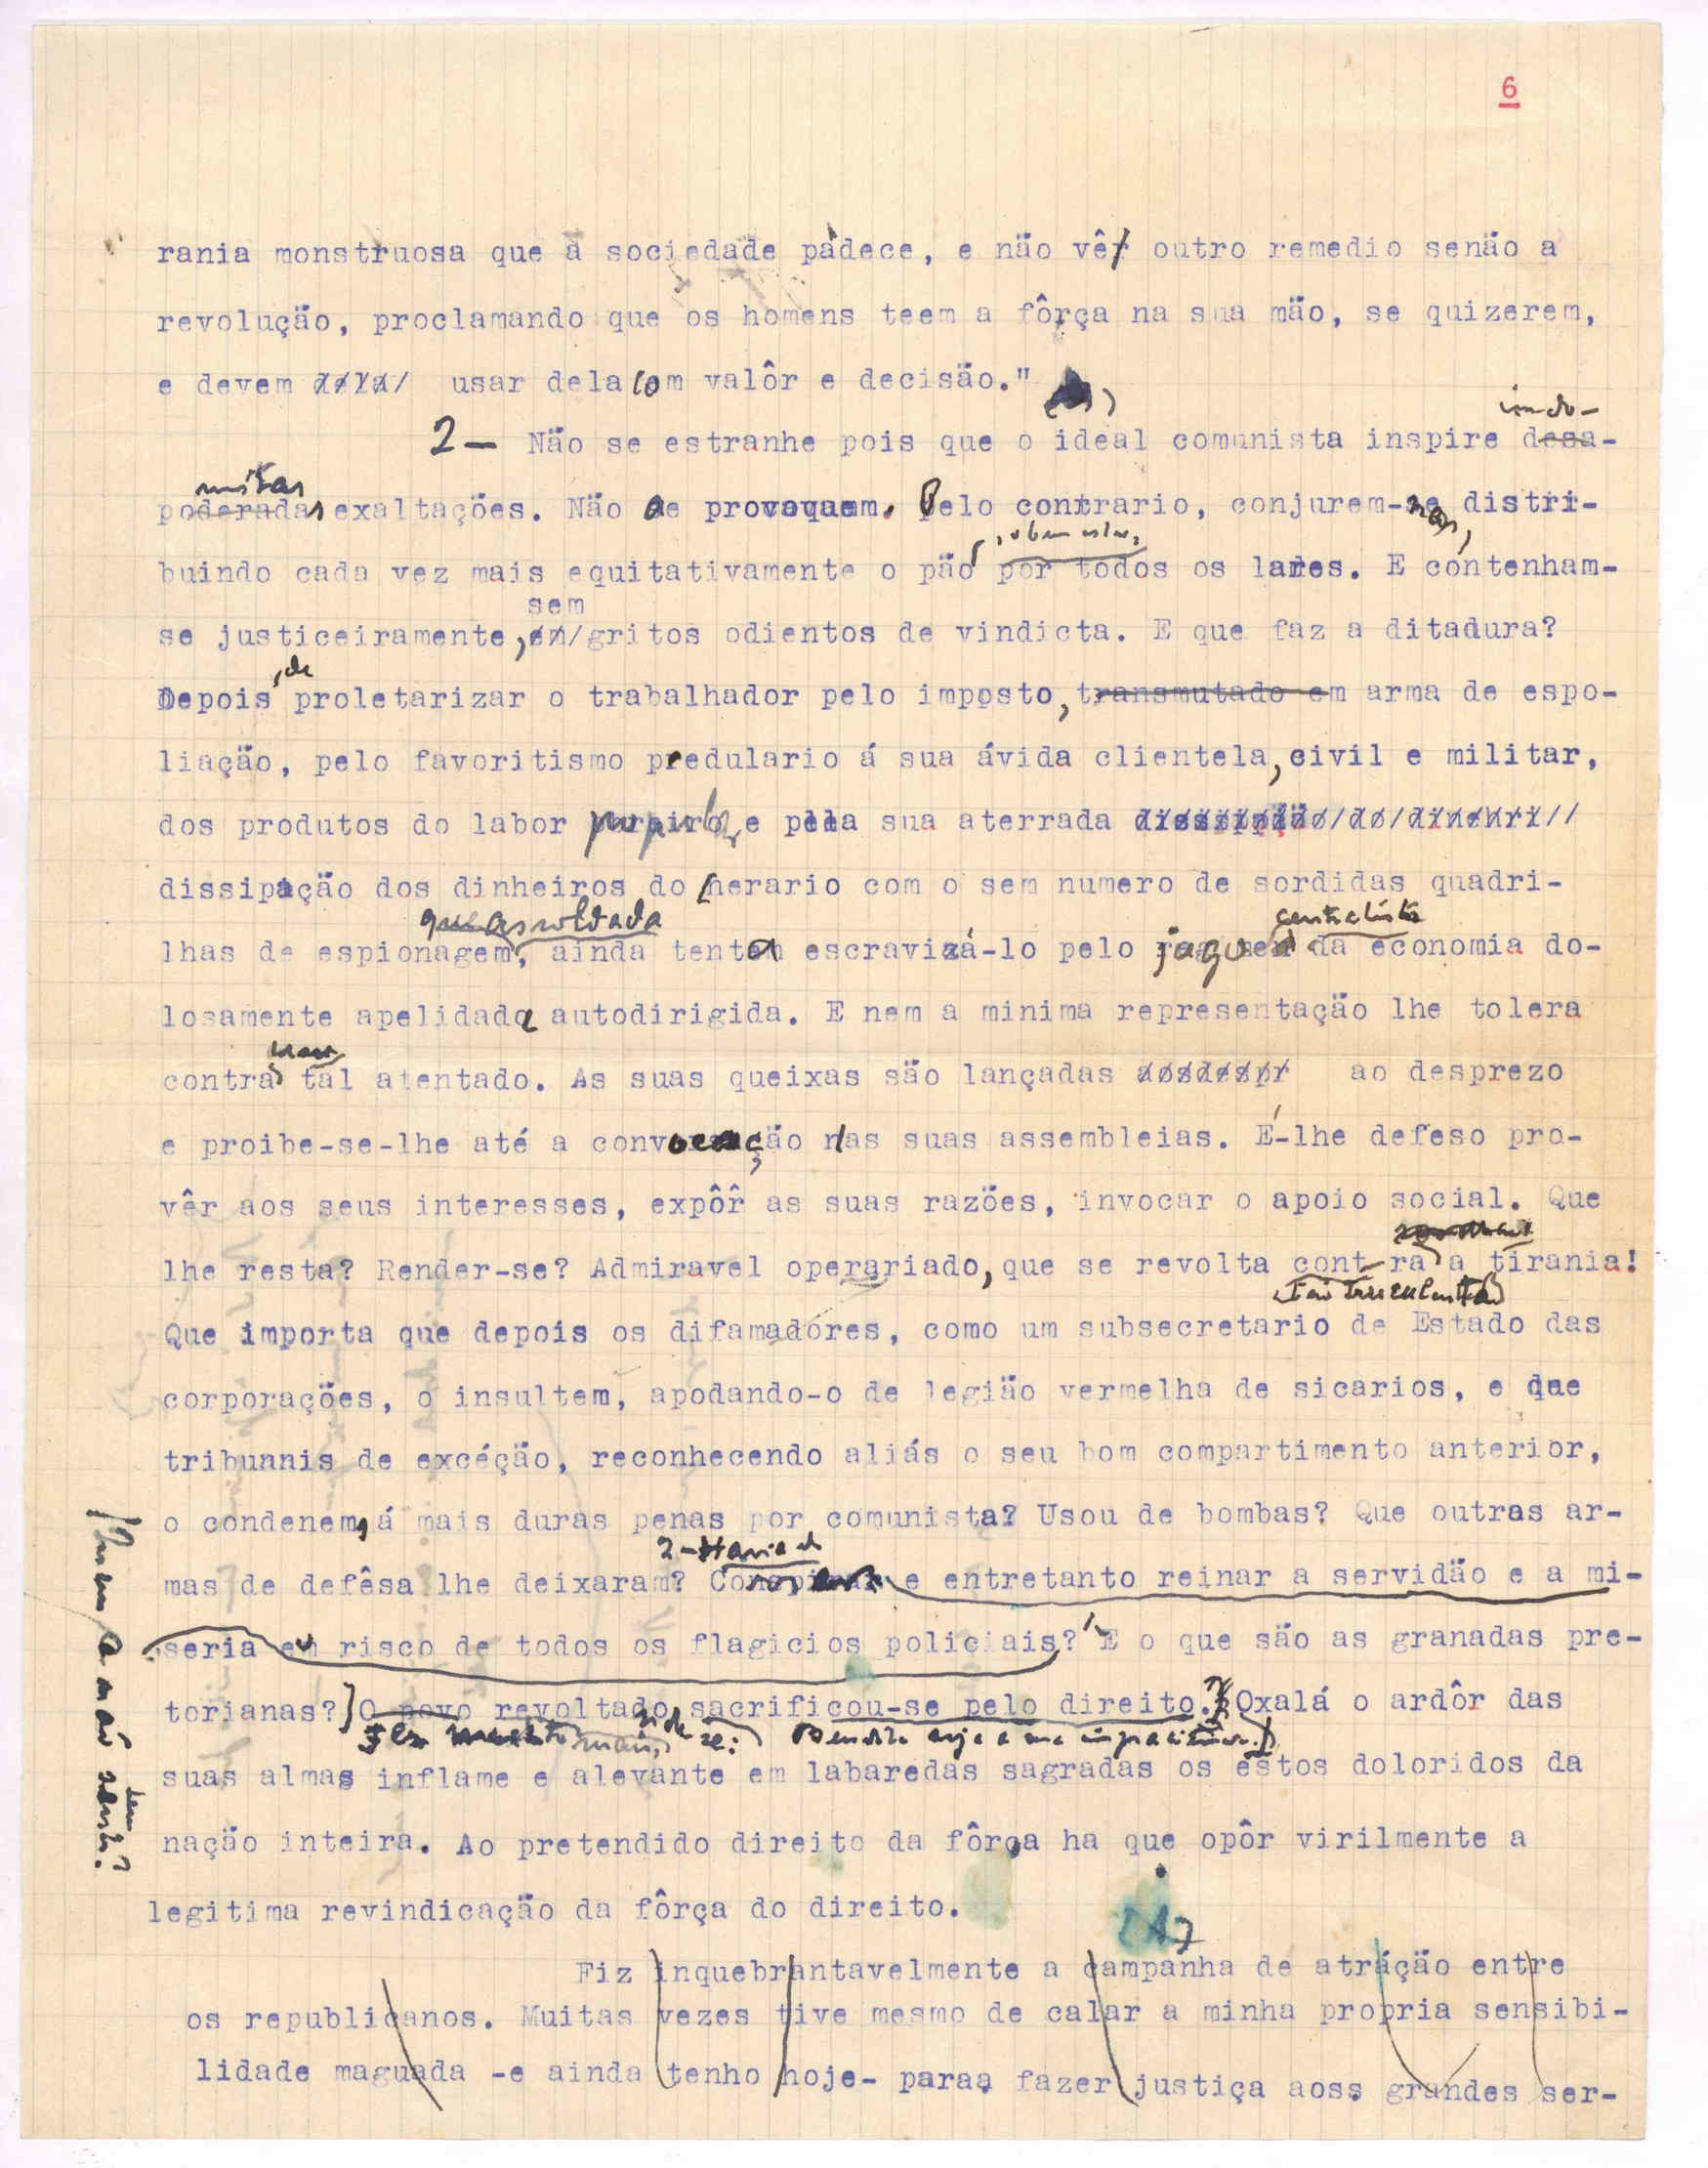 6
rania monstruosa que a sociedade padece, e não vê outro remedio senão a
revolução, proclamando que os homens teem a fôrça na sua mão, se quizerem,
e devem usar dela com valôr e decisão."
indo-
2- Não se estranhe pois que o ideal comunista inspire desa-
mitas
poderadas exaltações. Não se provoquem. Pelo contrario, conjurem-nas, distri-
, o bem estar,
buindo cada vez mais equitativamente o pão por todos os lares. E contenham-
sem
se justiceiramente, gritos odientos de vindicta. E que faz a ditadura?
, de
Depois proletarizar o trabalhador pelo imposto, transmutado em arma de espo-
liação, pelo favoritismo predulario á sua ávida clientela, civil e militar,
dos produtos do labor e pela sua aterrada
dissipação dos dinheiros do herario com o sem numero de sordidas quadri-
que assoldada
centralista
lhas de espionagem, ainda tenta escravizá-lo pelo da economia do-
losamente apelidada autodirigida. E nem a minima representação lhe tolera
contra tal atentado. As suas queixas são lançadas ao desprezo
e proibe-se-lhe até a convocação das suas assembleias. É-lhe defeso pro-
vêr aos seus interesses, expôr as suas razões, invocar o apoio social. Que
lhe resta? Render-se? Admiravel operariado, que se revolta contra a tirania!
tão truculenta
Que importa que depois os difamadóres, como um subsecretario de Estado das
corporações, o insultem, apodando-o de legião vermelha de sicarios, e que
tribunais de excéção, reconhecendo aliás o seu bom compartimento anterior,
o condenem, á mais duras penas por comunista? Usou de bombas? Que outras ar-
2- Havia de
mas de defêsa lhe deixaram? e entretanto reinar a servidão e a mi-
seria em risco de todos os flagicios policiais? E o que são as granadas pre-
torianas?] O povo revoltado sacrificou-se pelo direito. Oxalá o ardôr das
Fez mais, se: Bendita seja a sua impaciência.
suas almas inflame e alevante em labaredas sagradas os estos doloridos da
nação inteira. Ao pretendido direito da fôrça ha que opôr virilmente a
legitima revindicação da fôrça do direito.
Fiz inquebrantavelmente a campanha de atráção entre
os republicanos. Muitas vezes tive mesmo de calar a minha propria sensibi-
lidade maguada -e ainda tenho hoje- paraa fazer justiça aoss grandes ser-